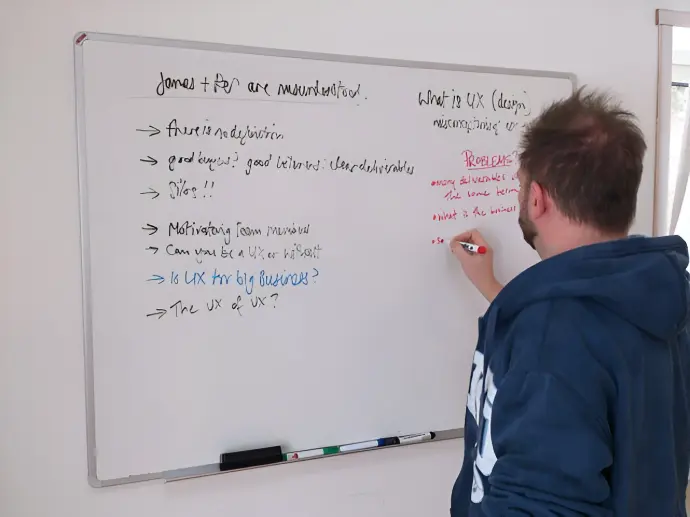 James + are misunderstood.
→ there is no definition
→ good buyers? good between: clear deliverables
→ Silos!!
→ Motivating Team members
→ Can you be a UX er without
→ Is UX for big Business?
→ The UX of UX?
What is UX (design)
misconceptions of
PROBLEMS?
•many deliverables
the same term
•What is the business
•so